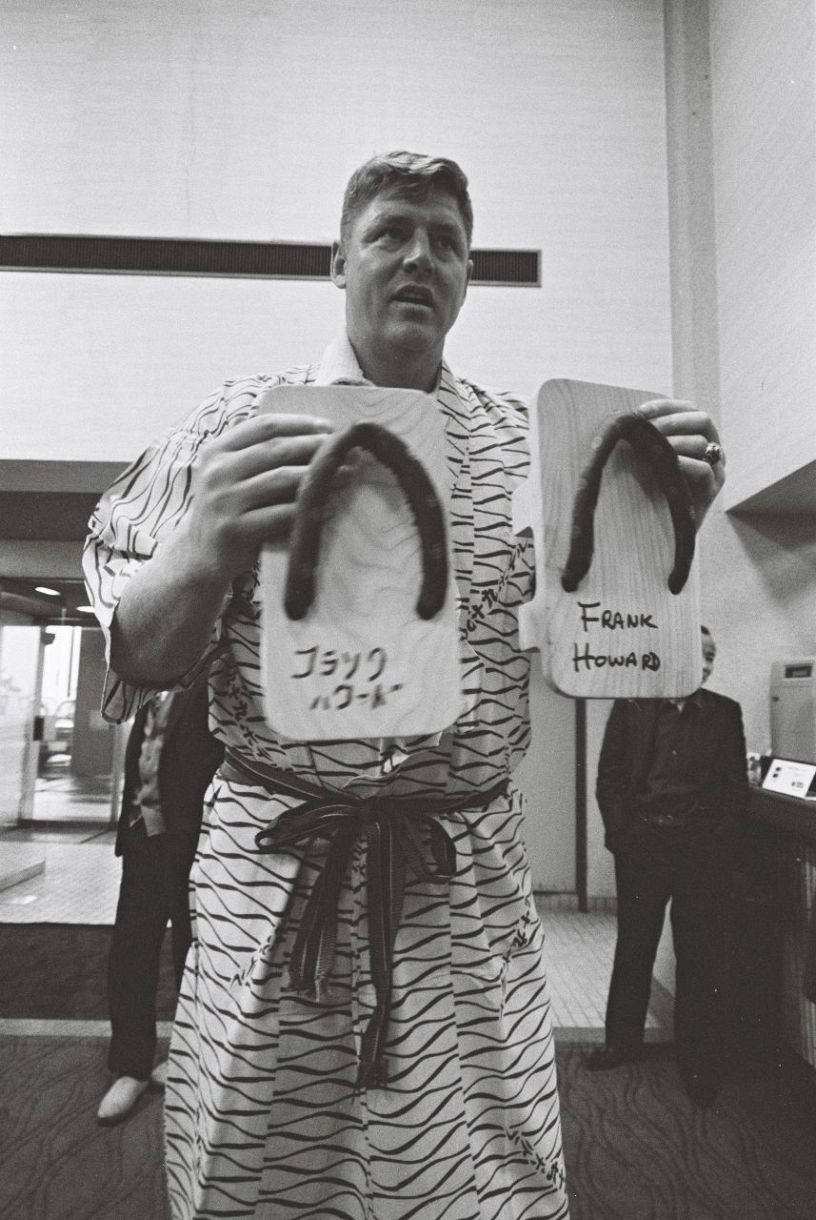 フランク
ハワード
FRANK
HOWARD